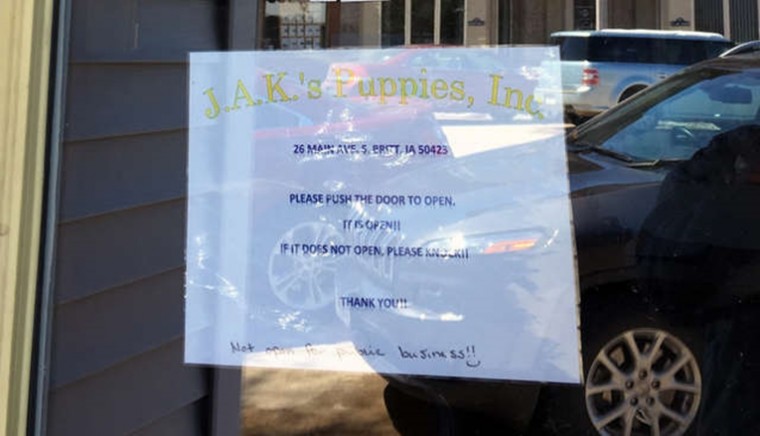 J.A.K.'s Puppies, Inc.
26 MAIN AVE. S. BRITT, IA 50423
PLEASE PUSH THE DOOR TO OPEN.
IT IS OPEN!!
IF IT DOES NOT OPEN, PLEASE KNOCK!!
THANK YOU!!
Not open for public business!!